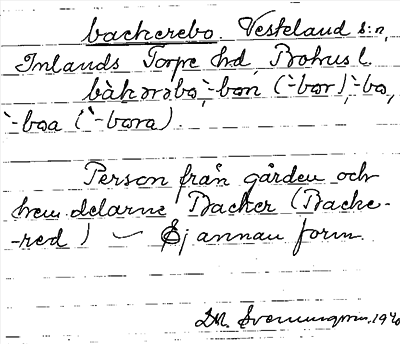 backerebo. Vesteland s:n,
Inlands Torpe hd, Bohus l.
bàkərəbo, `-bon (`-bor), `-bo,
`-boa (`-bora)
Person från gården och
hem.delarne Backer (Backe-
-red) — Ej annan form.
D.M. 1940